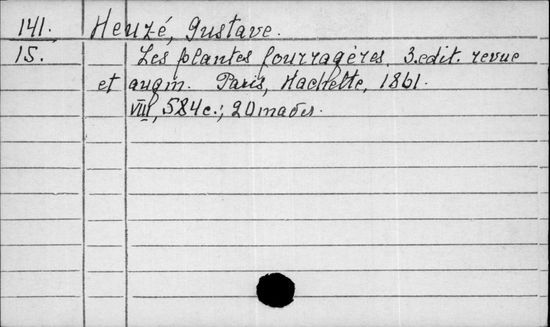 141. Heuzé, Gustave.
15. Les plantes fourragères. 3.edit. revue
et augm. Paris, Hachette, 1861.
VIII, 584c.; 20